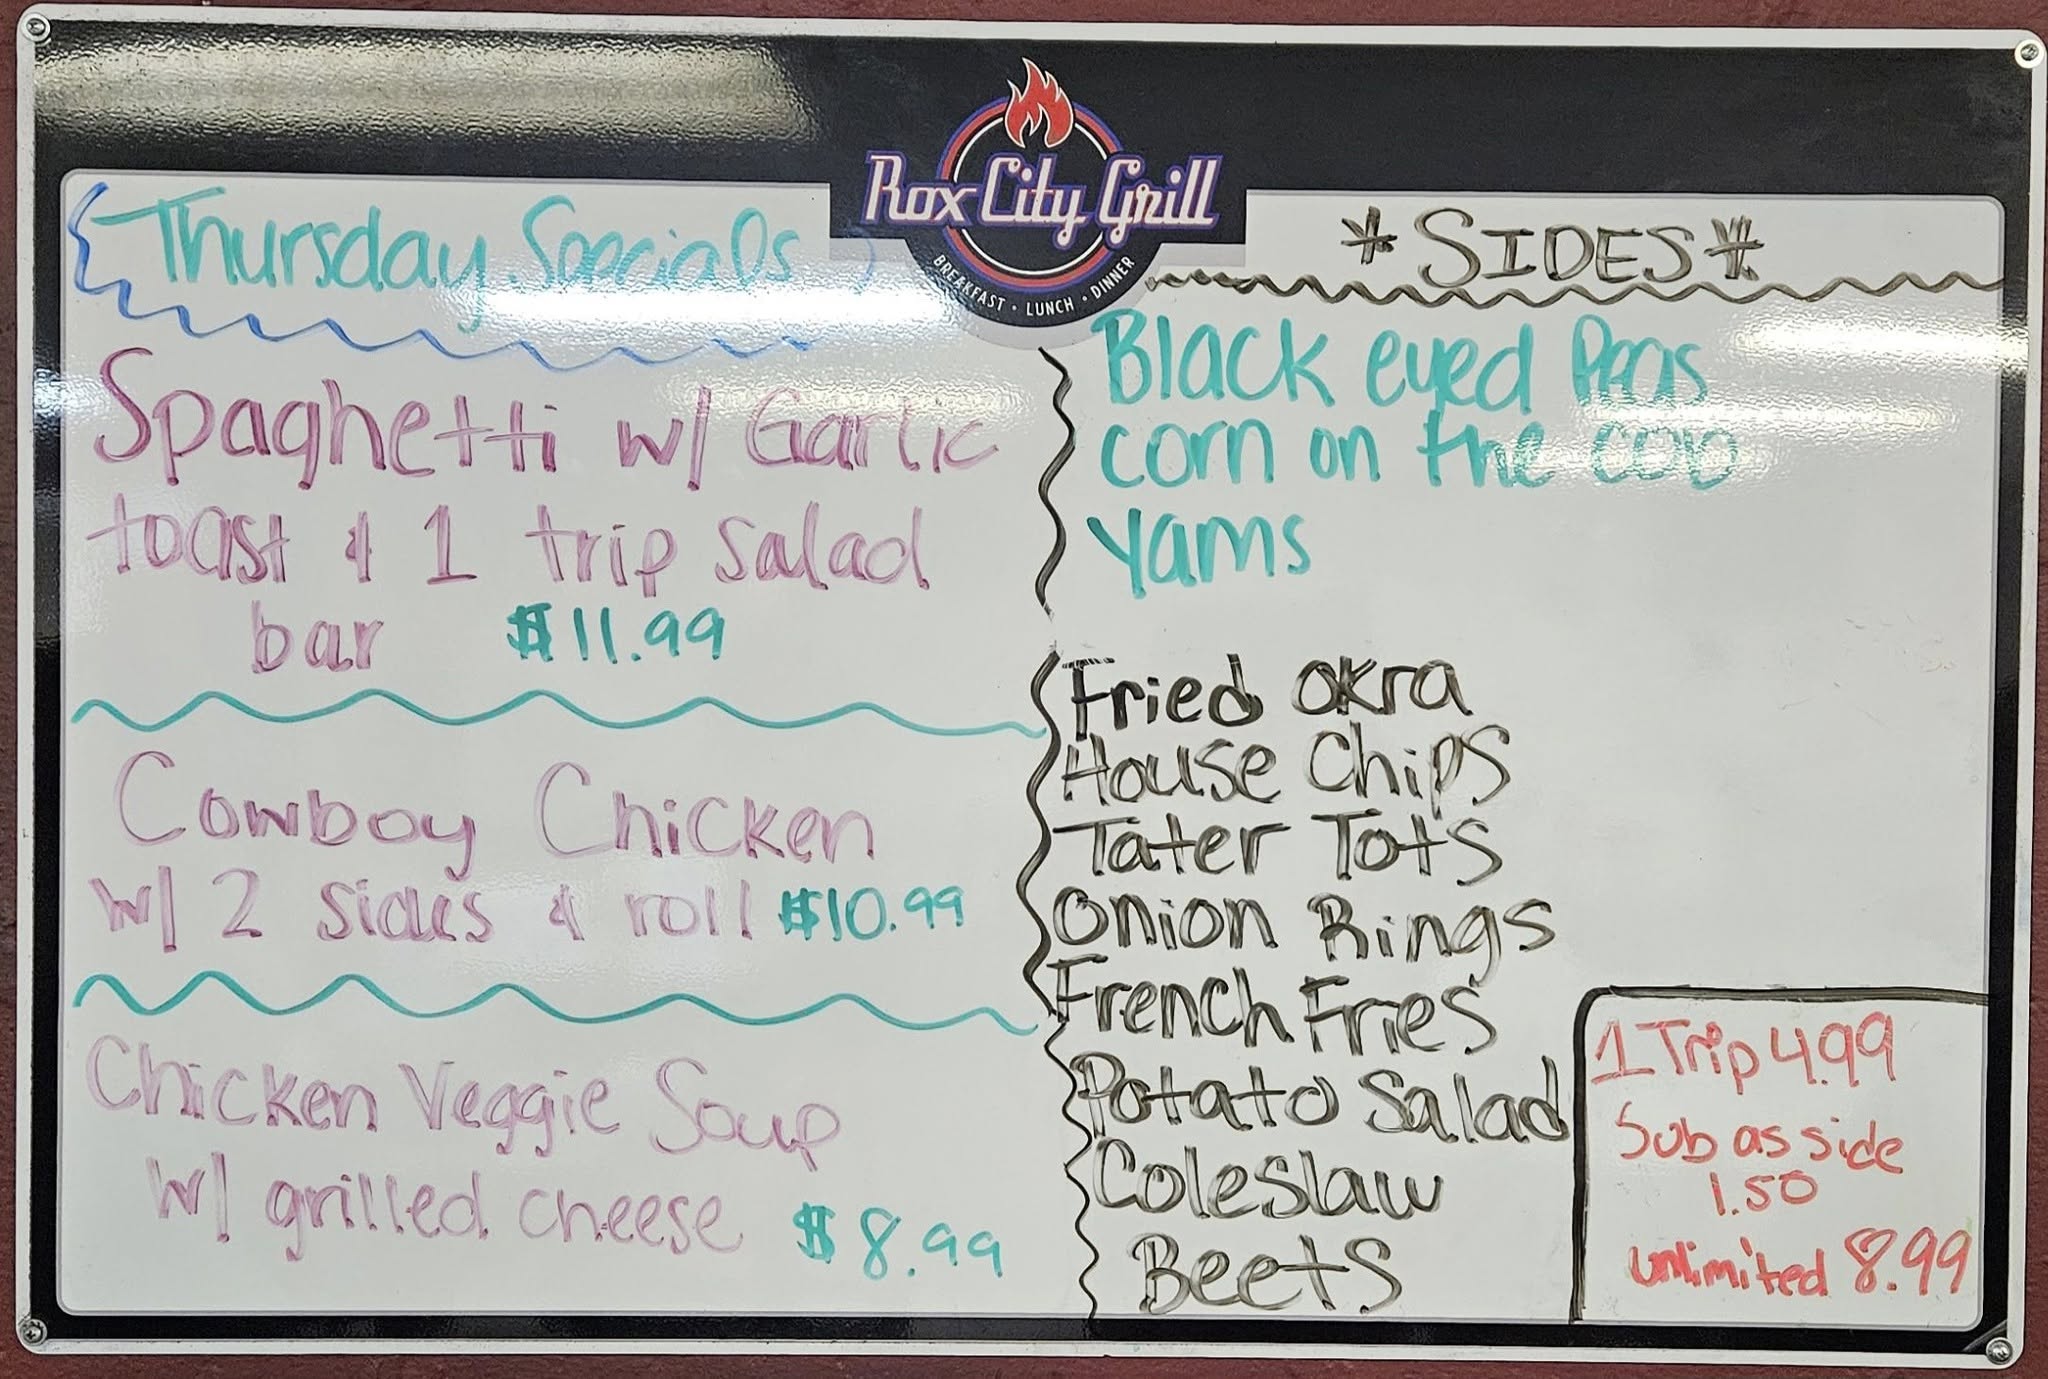 Rox City Grill
BREAKFAST • LUNCH • DINNER
Thursday Specials
Spaghetti w/ Garlic
toast & 1 trip salad
bar $11.99
Cowboy Chicken
w/ 2 sides & roll $10.99
Chicken Veggie Soup
w/ grilled cheese $8.99
*SIDES*
Black eyed Peas
corn on the cob
yams
Fried okra
House Chips
Tater Tots
Onion Rings
French Fries
Potato Salad
Coleslaw
Beets
1 Trip 4.99
Sub as side
1.50
unlimited 8.99